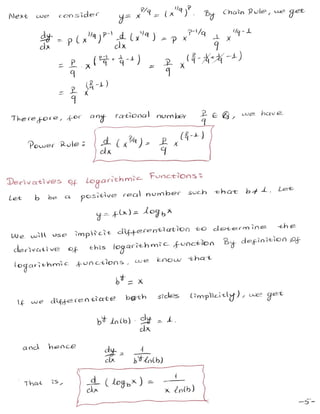 Next we consider y = x^{p/q} = (x^{1/q})^p. By Chain Rule, we get
dy/dx = p (x^{1/q})^{p-1} d/dx (x^{1/q}) = p x^{p-1/q} 1/q x^{1/q-1}
= p/q x^{(p-1/q + 1/q - 1)} = p/q x^{(p/q - 1/q + 1/q - 1)}
= p/q x^{(p/q - 1)}
Therefore, for any rational number p/q ∈ Q, we have
Power Rule: d/dx (x^{p/q}) = p/q x^{(p/q - 1)}
Derivatives of Logarithmic Functions:
Let b be a positive real number such that b≠1. Let
y = f(x) = log_b x
We will use implicit differentiation to determine the
derivative of this logarithmic function. By definition of
logarithmic functions, we know that
b^y = x
If we differentiate both sides (implicitly), we get
b^y ln(b) · dy/dx = 1.
and hence
dy/dx = 1/(b^y ln(b))
That is, d/dx (log_b x) = 1/(x ln(b))
-5-